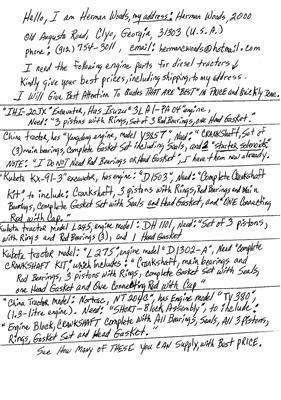 Hello, I am Herman Woods, my address: Herman Woods, 2000
Old Augusta Road, Clyo, Georgia, 31303 (U.S.A.)
phone: (912) 754-3011, email: hermancwoods@hotmail.com
I need the following engine parts for diesel tractors
Kindly give your best prices, including shipping to my address.
I Will Give Best Attention To Quotes THAT ARE "BEST" IN PRICE and Quickly Done.
"IHI-20JX" Excavator, Has Isuzu "3LA1-PA04" engine.
Need: "3 pistons with Rings, Set of 3 Rod Bearings, one Head Gasket."
China tractor, has "Yangdong engine, model Y385T", Need: "CRANKSHAFT, Set of
(3) main bearings, Complete Gasket Set including Seals, and 2 "starter solenoids"
NOTE: "I Do NOT Need Rod Bearings or Head Gasket", I have them now already.
"Kubota Kx-91-3" excavator, has engine: "D1503", Need: "Complete Crankshaft
Kit", to include: Crankshaft, 3 pistons with Rings, Rod Bearings and Main
Bearings, Complete Gasket Set with Seals and Head Gasket, and "ONE Connecting
Rod with Cap."
Kubota tractor model L245, engine model: DH1101, Need: "Set of 3 pistons,
with Rings and Rod Bearings (3), and 1 Head Gasket
Kubota tractor model: "L275", engine model "D1302-A", Need "Complete
CRANKSHAFT KIT", which includes: "Crankshaft, main bearings and
Rod Bearings, 3 pistons with Rings, complete Gasket Set with Seals,
one Head Gasket and One Connecting Rod with Cap"
"China Tractor Model: Nortrac, NT 204C", has Engine model "TY380",
(1.3-litre engine). Need: "SHORT-Block Assembly", to include:
"Engine Block, CRANKSHAFT Complete with All Bearings, Seals, All 3 pistons,
Rings, Gasket Set and Head Gasket."
See How Many of THESE you CAN Supply, with Best PRICE.